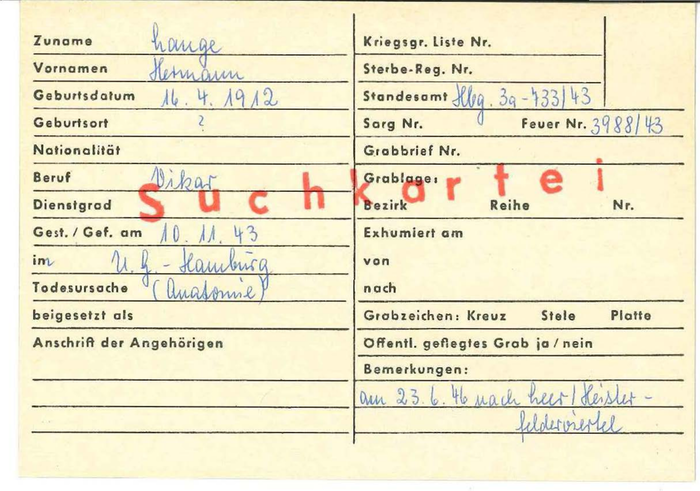 Zuname Lange
Vornamen Hermann
Geburtsdatum 16. 4. 1912
Geburtsort ?
Nationalität
Beruf Vikar
Dienstgrad
Gest. / Gef. am 10. 11. 43
im U. G. - Hamburg
Todesursache (Anatomie)
beigesetzt als
Anschrift der Angehörigen
Suchkartei
Kriegsgr. Liste Nr.
Sterbe-Reg. Nr.
Standesamt Hbg. 3a - 733/43
Sarg Nr. Feuer Nr. 3988/43
Grabbrief Nr.
Grablage:
Bezirk Reihe Nr.
Exhumiert am
von
nach
Grabzeichen: Kreuz Stele Platte
Öffentl. gepflegtes Grab ja / nein
Bemerkungen:
am 23. 6. 46 nach Leer / Heister-
felderviertel